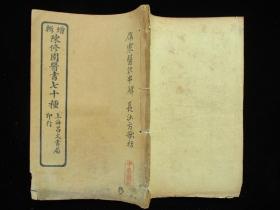 傷寒醫訣串解 長沙方歌括
增輯
陳修園醫書七十種
上海昌文書局
印行